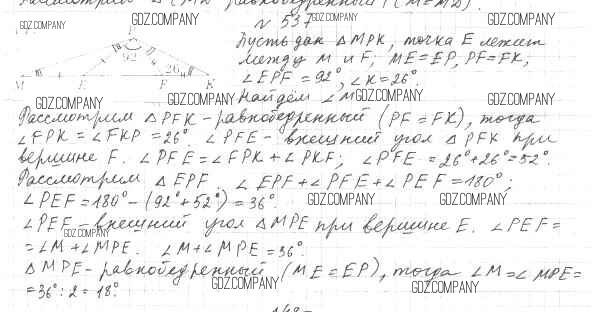 Рассмотрим Δ равнобедренный (M=MD).
GDZ.COMPANY GDZ.COMPANY GDZ.COMPANY
№ 537
Пусть дан ΔMPK, точка E лежит
P
между M и F; ME=EP, PF=FK;
92 26
∠EPF = 92°, ∠K = 26°.
M E F K
Найдём ∠M
GDZ.COMPANY GDZ.COMPANY GDZ.COMPANY GDZ.COMPANY
Рассмотрим ΔPFK - равнобедренный (PF = FK), тогда
∠FPK = ∠FKP = 26°. ∠PFE - внешний угол ΔPFK при
вершине F. ∠PFE = ∠FPK + ∠PKF; ∠PFE = 26°+26°=52°.
Рассмотрим ΔEPF. ∠EPF + ∠PFE + ∠PEF = 180°;
∠PEF = 180° - (92°+52°) = 36°.
GDZ.COMPANY GDZ.COMPANY
∠PEF - внешний угол ΔMPE при вершине E. ∠PEF =
GDZ.COMPANY
= ∠M + ∠MPE. ∠M + ∠MPE = 36°.
ΔMPE - равнобедренный (ME = EP), тогда ∠M = ∠MPE =
= 36° : 2 = 18°.
GDZ.COMPANY GDZ.COMPANY